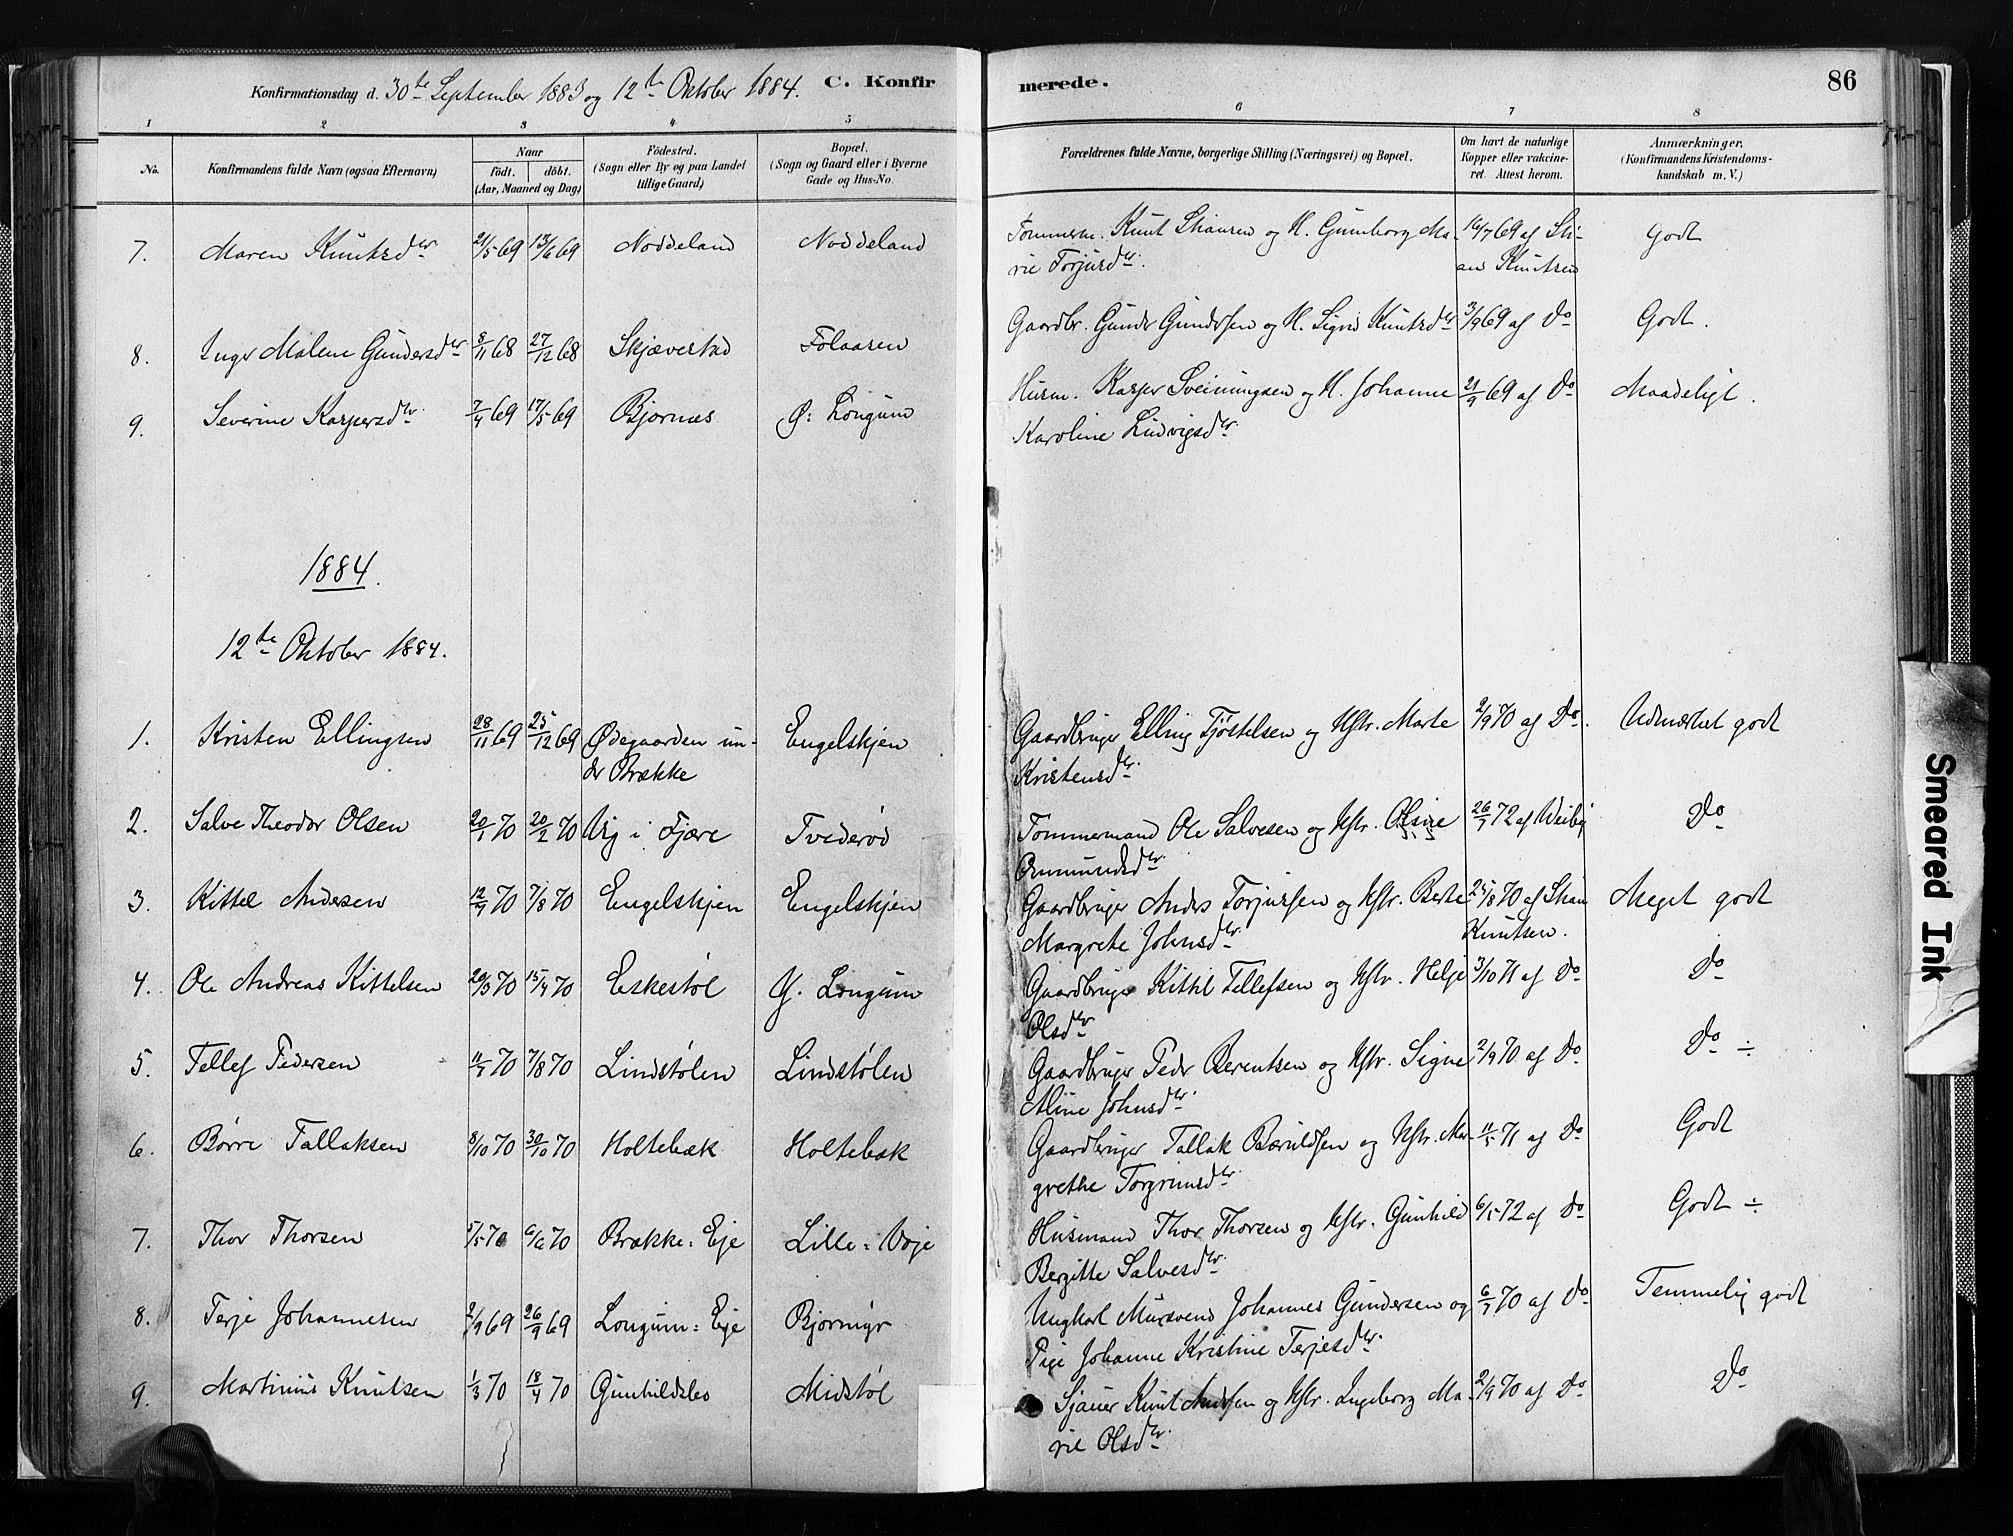 Konfirmationsdag d. 30te September 1883 og 12te Oktober 1884. C. Konfir
merede. 86
1 2 3 4 5 6 7 8
No. Konfirmandens fulde Navn (ogsaa Efternavn) Naar födt. döbt. (Aar, Maaned og Dag) Födested. (Sogn eller By og paa Landet tillige Gaard) Bopæl. (Sogn og Gaard eller i Byerne Gade og Hus-No.
Forældrenes fulde Navne, borgerlige Stilling (Næringsvei) og Bopæl. Om havt de naturlige Kopper eller vakcineret. Attest herom. Anmærkninger, (Konfirmandens Kristendomskundskab m. V.)
7. Maren Knutsdtr 21/5 69 13/6 69 Noddeland Noddeland
Tømmerm. Knut and H. Gunborg Ma- 69 af Godt
rie Torjusdtr. Knutsen
8. Inger Malene Gundersdtr 8/11 68 27/12 68 Skjævestad Folaaren
Gaardbr. Gunder Gundersen og H. Signe Knutsdtr 3/9 69 af Do Godt.
9. Severine Kaspersdtr. 7/4 69 17/5 69 Bjornes Ø: Longum
Husm. Kasper Sveinungsen og H. Johanne 21/9 69 af Do Maadeligt.
Karoline Ludvigsdtr.
1884.
12te Oktober 1884.
1. Kristen Ellingsen 28/11 69 25/12 69 Ødegaarden un- Engelskjen
der Brække
Gaardbruger Elling Tjøstelsen og Hstr. Marte 2/9 70 af Do. Udmærket godt
Kristensdtr.
2. Salve Theodor Olsen 20/1 70 20/2 70 i Fjære Tvederød
Tømmermand Ole Salvesen og Hstr. Olsine 26/7 72 af Do
Omundsdtr.
3. Kittel Andersen 12/7 70 7/8 70 Engelskjen Engelskjen
Gaardbruger Anders Torjussen og Hstr. Berte 25/8 70 af Meget godt
Margrete Johnsdtr. Knutsen.
4. Ole Andreas Kittelsen 20/3 70 15/4 70 Eskestøl Y. Longum
Gaardbruger Kittil Tellefsen og Hstr. Helje 3/10 71 af Do Do
Olsdtr
5. Tellef Pedersen 11/7 70 7/8 70 Lindstølen Lindstølen
Gaardbruger Peder Berentsen og Hstr. Signe 2/9 70 af Do Do ÷
Aline Johnsdtr.
6. Børre Tallaksen 8/10 70 30/10 70 Holtebæk Holtebæk
Gaardbruger Tallak Bærulfsen og Hstr. Mar- 11/5 71 af Do Godt
grethe Torgrimsdtr.
7. Thor Thorsen 5/5 70 6/6 70 Brække: Eje Lille: Voje
Husmand Thor Thorsen og Hstr. Gunhild 6/5 72 af Do Godt ÷
Bergitte Salvesdtr.
8. Terje Johannesen 2/9 69 26/9 69 Longum: Eje Bjormyr
Ungkarl Mursvend Johannes Gundersen og 6/7 70 af Do Temmelig godt
Pige Johanne Kristine Terjesdtr.
9. Martinius Knutsen 1/3 70 18/4 70 Gunhildsbo Midstøl
Sjauer Knut Andersen og Hstr. Ingeborg Ma- 2/9 70 af Do Do
rie Olsdtr.
Smeared Ink